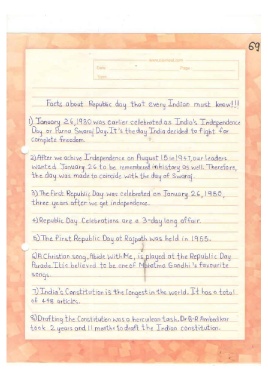 69
Facts about Republic day that every Indian must know!!!
1) January 26, 1930 was earlier celebrated as India's Independence
Day or Purna Swaraj Day. It's the day India decided to fight for
complete freedom.
2) After we achive Independence on August 15 in 1947, our leaders
wanted January 26 to be remembered in history as well. Therefore,
the day was made to coincide with the day of Swaraj.
3) The First Republic Day was celebrated on January 26, 1950,
three years after we got independence.
4) Republic Day Celebrations are a 3-day long affair.
5) The first Republic Day at Rajpath was held in 1955.
6) A Christian song, Abide with Me, is played at the Republic Day
Parade. It is believed to be one of Mahatma Gandhi's favourite
songs.
7) India's Constitution is the longest in the world. It has a total
of 448 articles.
8) Drafting the Constitution was a herculean task. Dr. B.R Ambedkar
took 2 years and 11 months to draft the Indian constitution.